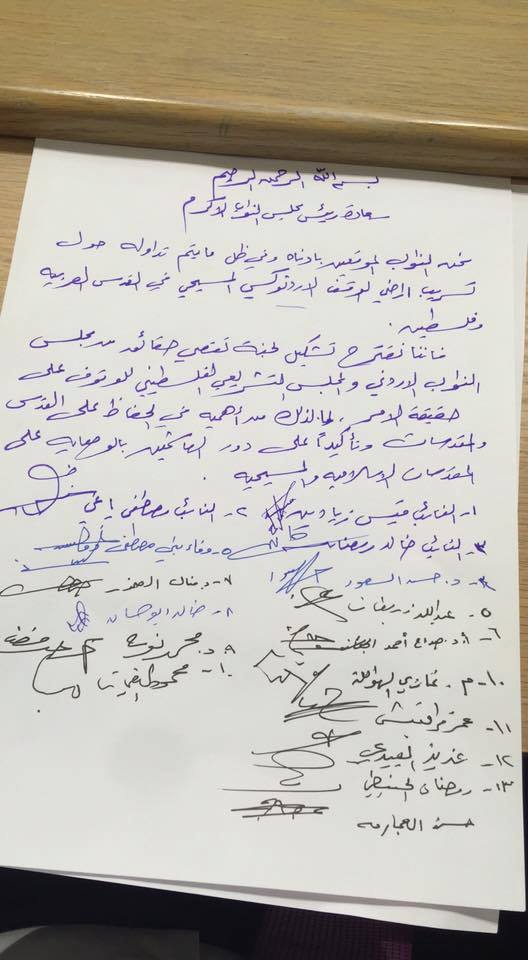 بسم الله الرحمن الرحيم
سعادة رئيس مجلس النواب الاكرم
نحن النواب الموقعين بادناه وفي ظل ما يتم تداوله حول
تسريب اراضي الوقف الارثوذكسي المسيحي في القدس العربيه
وفلسطين .
فاننا نقترح تشكيل لجنة تقصي حقائق من مجلس
النواب الاردني والمجلس التشريعي الفلسطيني للوقوف على
حقيقة الامر ، لما لذلك من أهميه في الحفاظ على القدس
والمقدسات وتأكيداً على دور الهاشميين بالوصايه على
المقدسات الاسلاميه والمسيحيه .
١- النائب قيس زيادين ٢- النائب مصطفى
٣- النائب خالد رمضان وفاء بني مصطفى
٤- د. حسن السعود ٧-
٥- عبدالله زريقات ٨- خالد ابو حسان
٦- أ.د. صداح أحمد ٩ د. محمد نوح
١٠- م. غازي الهواملة ١٠- محمود
١١- عمر قراقيش
١٢- عزيز العبيدي
١٣- رمضان الحنيطي
حسن العجارمه